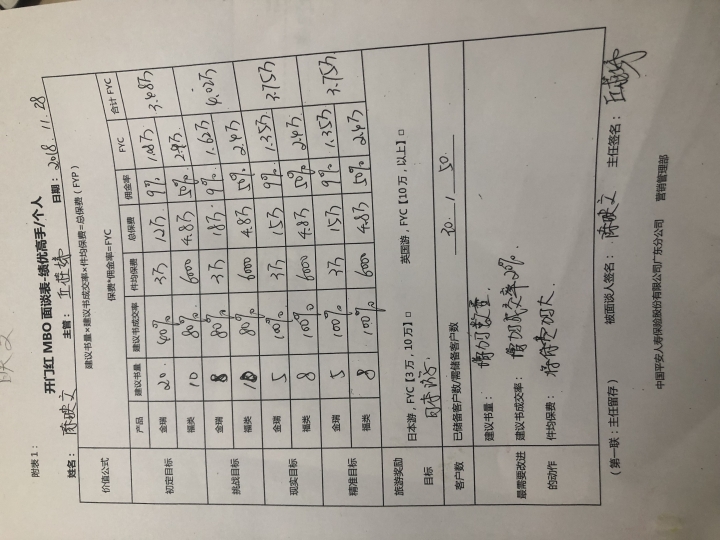 附表1：
开门红 MBO 面谈表-绩优高手/个人
姓名： 陈映文 主管： 日期：2018.11.28
价值公式 建议书量×建议书成交率×件均保费=总保费（FYP）
保费*佣金率=FYC
产品 建议书量 建议书成交率 件均保费 总保费 佣金率 FYC 合计 FYC
初定目标 金瑞 20. 60% 3万 12万 9% 3.48万
福类 10 80% 6000 4.8万 50% 2.4万
挑战目标 金瑞 8 80% 3万 18万 9% 1.62万 4.02万
福类 10 80% 6000 4.8万 50% 2.4万
现实目标 金瑞 5 100% 3万 15万 9% 1.35万 3.75万
福类 8 100% 6000 4.8万 50% 2.4万
精准目标 金瑞 5 100% 3万 15万 9% 1.35万 3.75万
福类 8 100% 6000 4.8万 50% 2.4万
旅游奖励 日本游，FYC【3万，10万】□ 英国游，FYC【10万，以上】□
目标 日本游.
客户数 已储备客户数/需储备客户数 30 / 50
最需要改进 建议书量： 增加数量.
的动作 建议书成交率： 增加成交率20%.
件均保费：
（第一联：主任留存） 被面谈人签名： 陈映文 主任签名：
中国平安人寿保险股份有限公司广东分公司 营销管理部